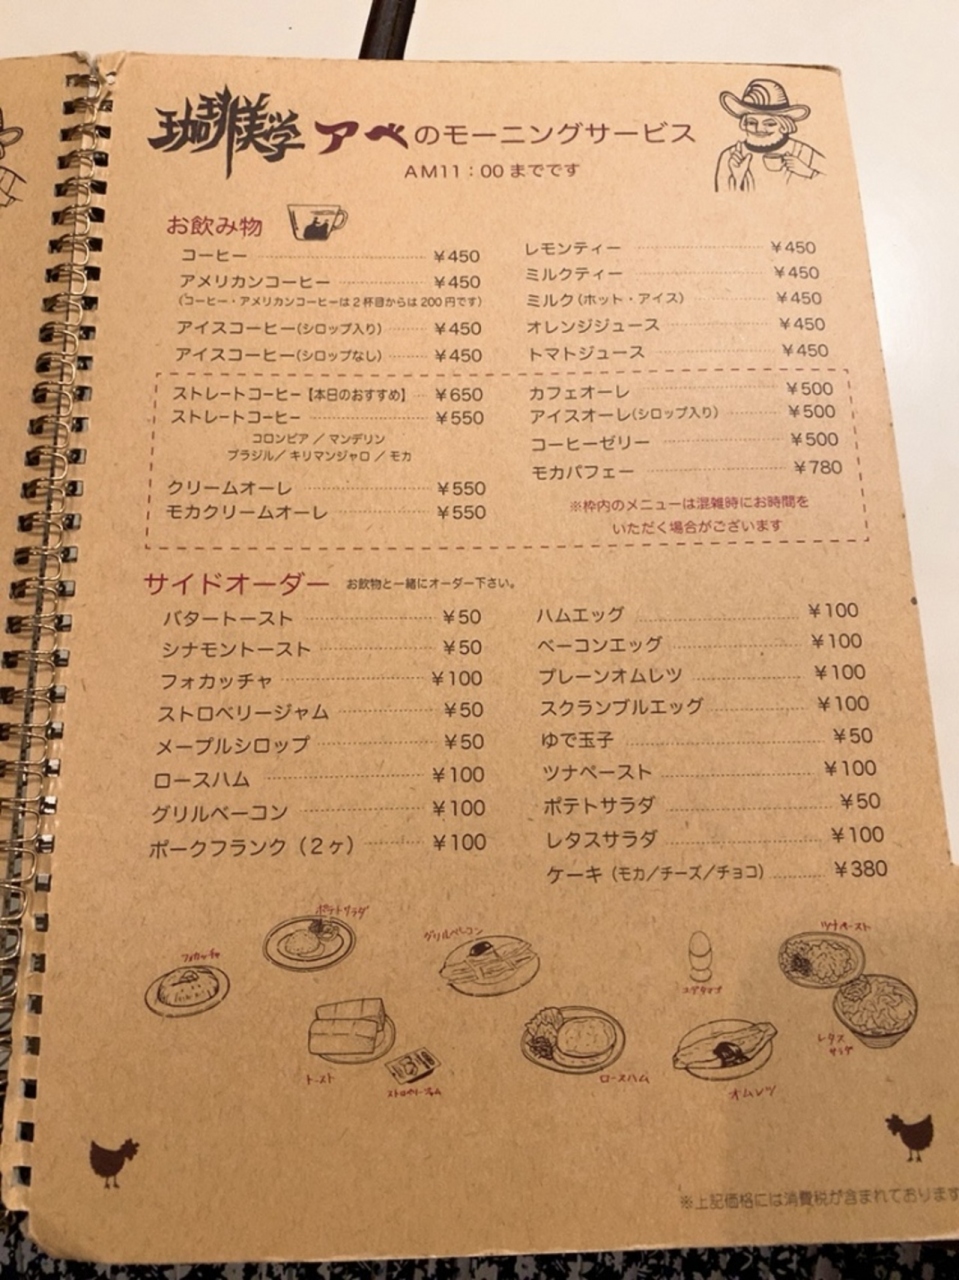 珈琲美学 アベのモーニングサービス
AM11:00 までです
お飲み物
コーヒー ¥450
アメリカンコーヒー ¥450
(コーヒー・アメリカンコーヒーは2杯目からは 200 円です)
アイスコーヒー(シロップ入り) ¥450
アイスコーヒー(シロップなし) ¥450
レモンティー ¥450
ミルクティー ¥450
ミルク(ホット・アイス) ¥450
オレンジジュース ¥450
トマトジュース ¥450
ストレートコーヒー【本日のおすすめ】 ¥650
ストレートコーヒー ¥550
コロンビア / マンデリン
ブラジル/ キリマンジャロ / モカ
クリームオーレ ¥550
モカクリームオーレ ¥550
カフェオーレ ¥500
アイスオーレ(シロップ入り) ¥500
コーヒーゼリー ¥500
モカパフェー ¥780
※枠内のメニューは混雑時にお時間を
いただく場合がございます
サイドオーダー お飲物と一緒にオーダー下さい。
バタートースト ¥50
シナモントースト ¥50
フォカッチャ ¥100
ストロベリージャム ¥50
メープルシロップ ¥50
ロースハム ¥100
グリルベーコン ¥100
ポークフランク(2ヶ) ¥100
ハムエッグ ¥100
ベーコンエッグ ¥100
プレーンオムレツ ¥100
スクランブルエッグ ¥100
ゆで玉子 ¥50
ツナペースト ¥100
ポテトサラダ ¥50
レタスサラダ ¥100
ケーキ(モカ/チーズ/チョコ) ¥380
ポテトサラダ
グリルベーコン
ツナペースト
フォカッチャ
ユデタマゴ
レタス
サラダ
トースト
ストロベリージャム
ロースハム
オムレツ
※上記価格には消費税が含まれております